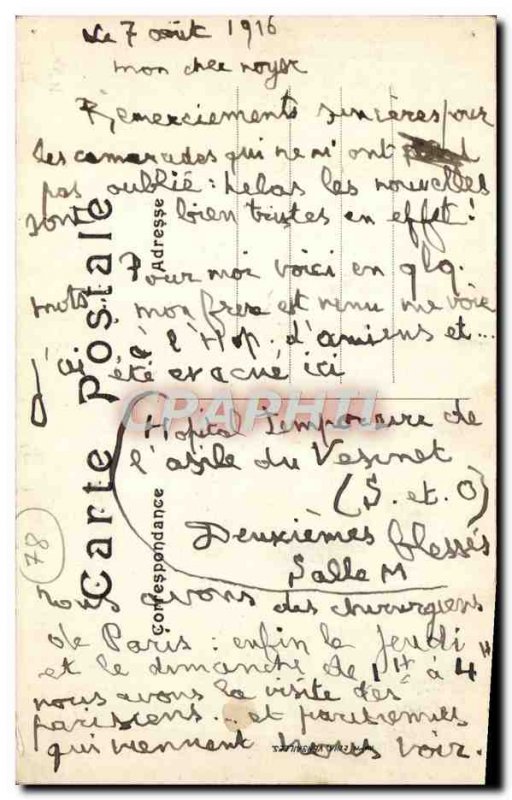 Le 7 août 1916
mon cher noyer
Remerciements sincères pour
les camarades qui ne m'ont
pas oublié : helas les nouvelles
sont bien tristes en effet !
Pour moi voici en qlq.
mots. mon frere est venu me voir
à l'Hop. d'amiens et...
j'ai été evacué ici
Hopital Temporaire de
l'asile du Vesinet
(S. et. O)
Deuxièmes blessés
Salle M
nous avons des chirurgiens
de Paris : enfin le jeudi
et le dimanche de 1H à 4H
nous avons la visite des
parisiens... et parisiennes
qui viennent nous voir.
Carte Postale
Adresse
Correspondance
78
CPAPHIL